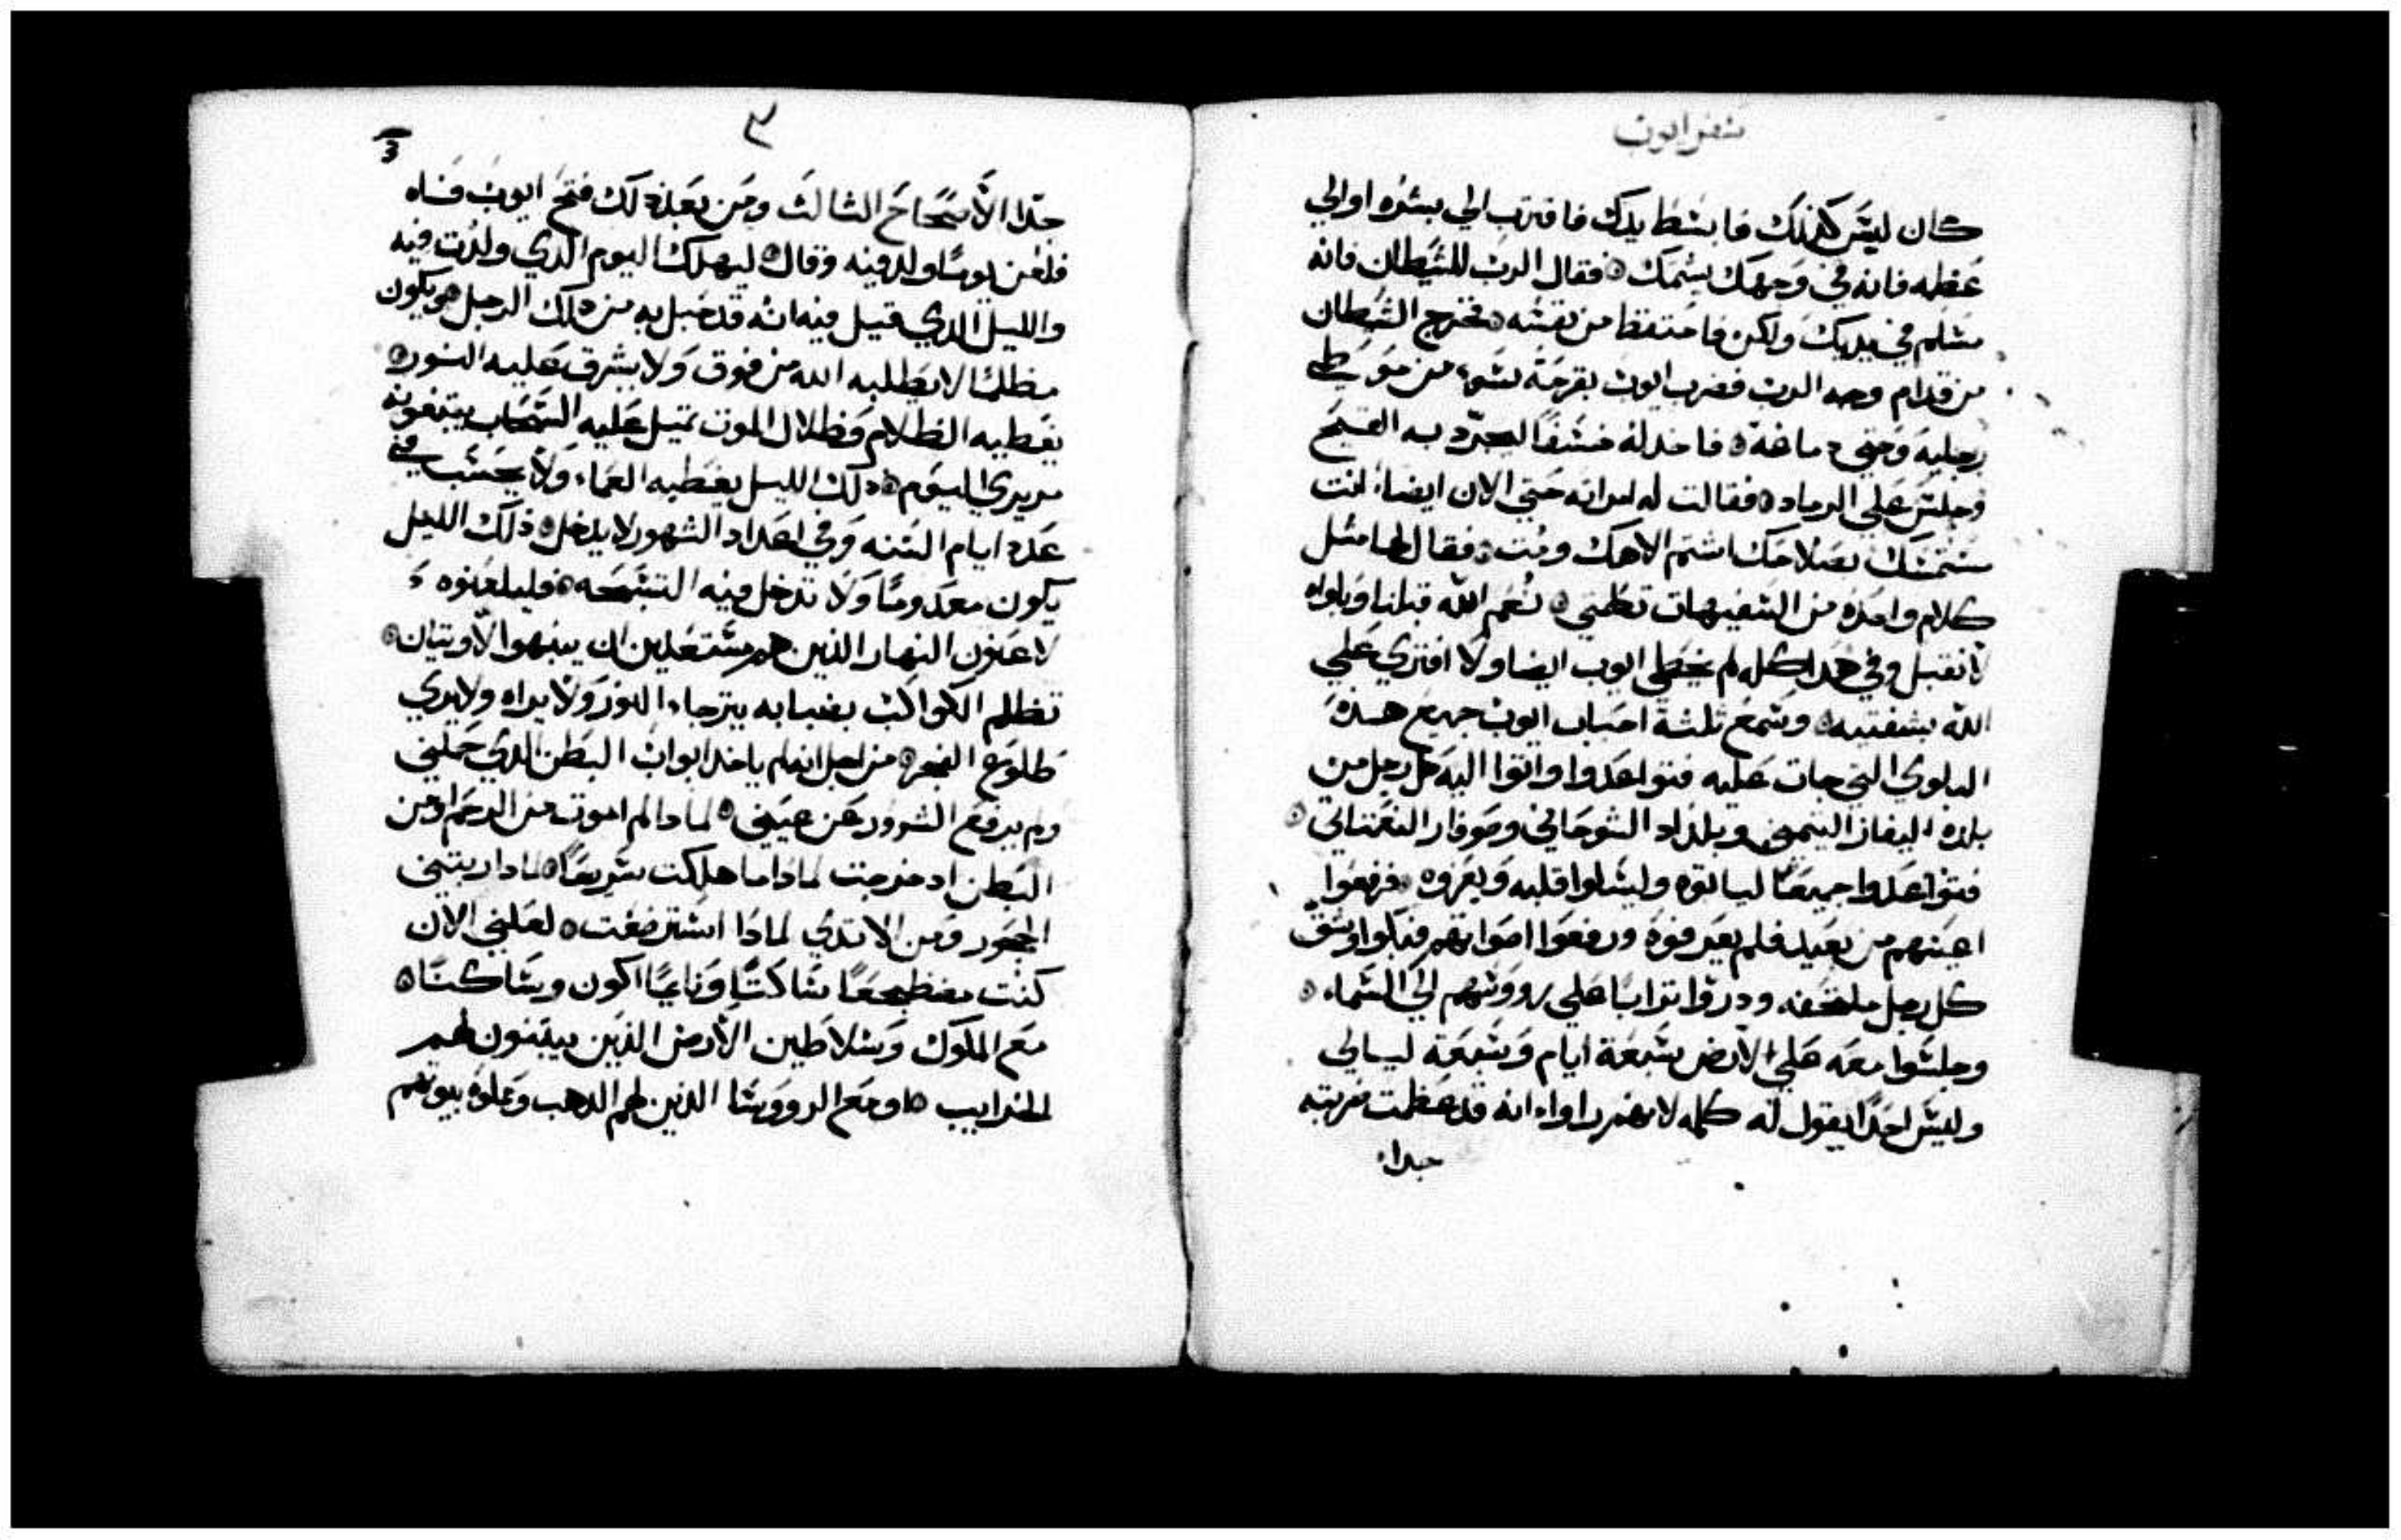 سفر ايوب
كان ليس كذلك فابسط يدك فاقترب الي بشره او الي
عظمه فانه في وجهك يشتمك ۞ فقال الرب للشيطان فانه
مسلم في يديك ولكن فاحتفظ من نفسه ۞ فخرج الشيطان
من قدام وجه الرب فضرب ايوب بقرحة سوء من موطي
رجليه وحتي دماغه ۞ فاخد له خسفا ليجرد به القيح
وجلس علي الرماد ۞ فقالت له امراته حتي الان ايضا انت
بصلاحك اشتم الاهك ومت ۞ فقال لها مثل
كلام واحده من السفيهات تكلمتي ۞ نعم الله قبلنا وبلواه
لا نقبل وفي هدا كله لم يخطي ايوب ايضا ولا افتري علي
الله بشفتيه ۞ وسمع ثلثة احباب ايوب جميع هذه
البلوي التي جات عليه فتواعدوا واتوا اليه كل رجل من
بلده اليفاز التيمني وبلداد الشوحاني وصوفار النعمتاني ۞
فتواعدوا جميعا لياتوه وليسلوا قلبه ويعزوه ۞ فرفعوا
اعينهم من بعيد فلم يعرفوه ورفعوا اصواتهم فبكوا وشق
كل رجل ملحفه ودروا ترابا علي رووسهم الي السماء ۞
وجلسوا معه علي الارض سبعة ايام وسبعة ليالي
وليس احدا يقول له كلمه لانهم راوا انه قد عظمت ضربته
جدا
٣
3
جدا الاصحاح الثالث ومن بعد ذلك فتح ايوب فاه
فلعن يوما ولد فيه وقال ۞ ليهلك اليوم الدي ولدت فيه
والليل الدي قيل فيه انه قد حبل به من دلك الرجل ۞ ويكون
مظلما لا يطلبه الله من فوق ولا يشرق عليه النور ۞
يغطيه الظلام وظلال الموت تميل عليه السحاب
مريري اليوم ۞ دلك الليل يغطيه العماء ولا يحسب في
عدد ايام السنه وفي اعداد الشهور لا يدخل ۞ ذلك الليل
يكون معدوما ولا تدخل فيه التسبحه ۞ فليلعنوه
لاعنون النهار الذين هم مستعدين ان ينبهوا لاويتان ۞
تظلم الكواكب بضبابه يترجاء النور ولا يراه ولا يري
طلوع الفجر ۞ من اجل انه لم ياخد ابواب البطن الدي حملني
ولم يرفع الشرور عن عيني ۞ لمادا لم اموت من الرحم او من
البطن اد خرجت لمادا ما هلكت سريعا ۞ لمادا ربتني
الحجور ومن الاتدي لماذا استرضعت ۞ لعلني الان
كنت مضطجعا ساكتا ونايما اكون وساكنا ۞
مع الملوك وسلاطين الارض الذين يبنون لهم
الخرايب ۞ او مع الرووسا الذين لهم الدهب وملوه بيوتهم